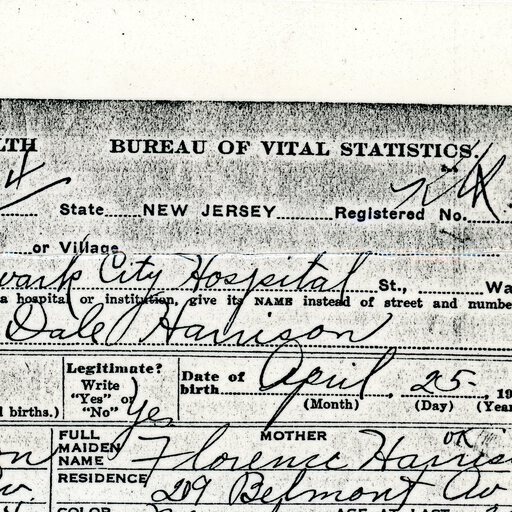 LTH BUREAU OF VITAL STATISTICS.
4 State NEW JERSEY Registered No.
or Village
wark City Hospital St., Wa
a hospital or institution, give its NAME instead of street and numbe
Dale Harrison
Legitimate? Write "Yes" or "No" Yes. Date of birth April, 25, 19
l births.) (Month) (Day) (Year
FULL MAIDEN NAME MOTHER OK
on Florence Harris
RESIDENCE
Av. 29 Belmont Av
COLOR AGE AT LAST